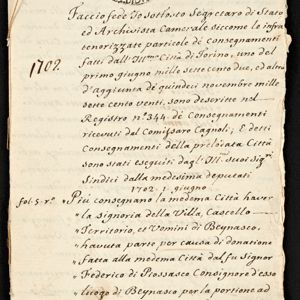 Faccio fede Io sottosto Segretaro di Stato
ed Archivista Camerale siccome le infra
tenorizzate particole de Consegnamenti
fatti dall' Ill.ma Città di Torino, uno del
1702. primo giugno mille sette cento due, ed altro
d'aggiunta de quindeci novembre mille
sette cento venti, sono descritte nel
Registro n.o 344. de Consegnamenti
ricevuti dal Comissaro Cagnoli; E detti
Consegnamenti della prelodata Città
sono stati eseguiti dagl' Ill.mi suoi sig.ri
Sindici dalla medesima deputati
1702. 1. giugno
fol. 5. r.o Più consegnano la medema Città haver
la signoria della Villa, Castello
Territorio, et Uomini di Beynasco,
havuta parte, per causa di donatione
fatta alla medema Città dal fu Signor
Federico di Piossasco Consignore d'esso
luogo di Beynasco per la portione ad